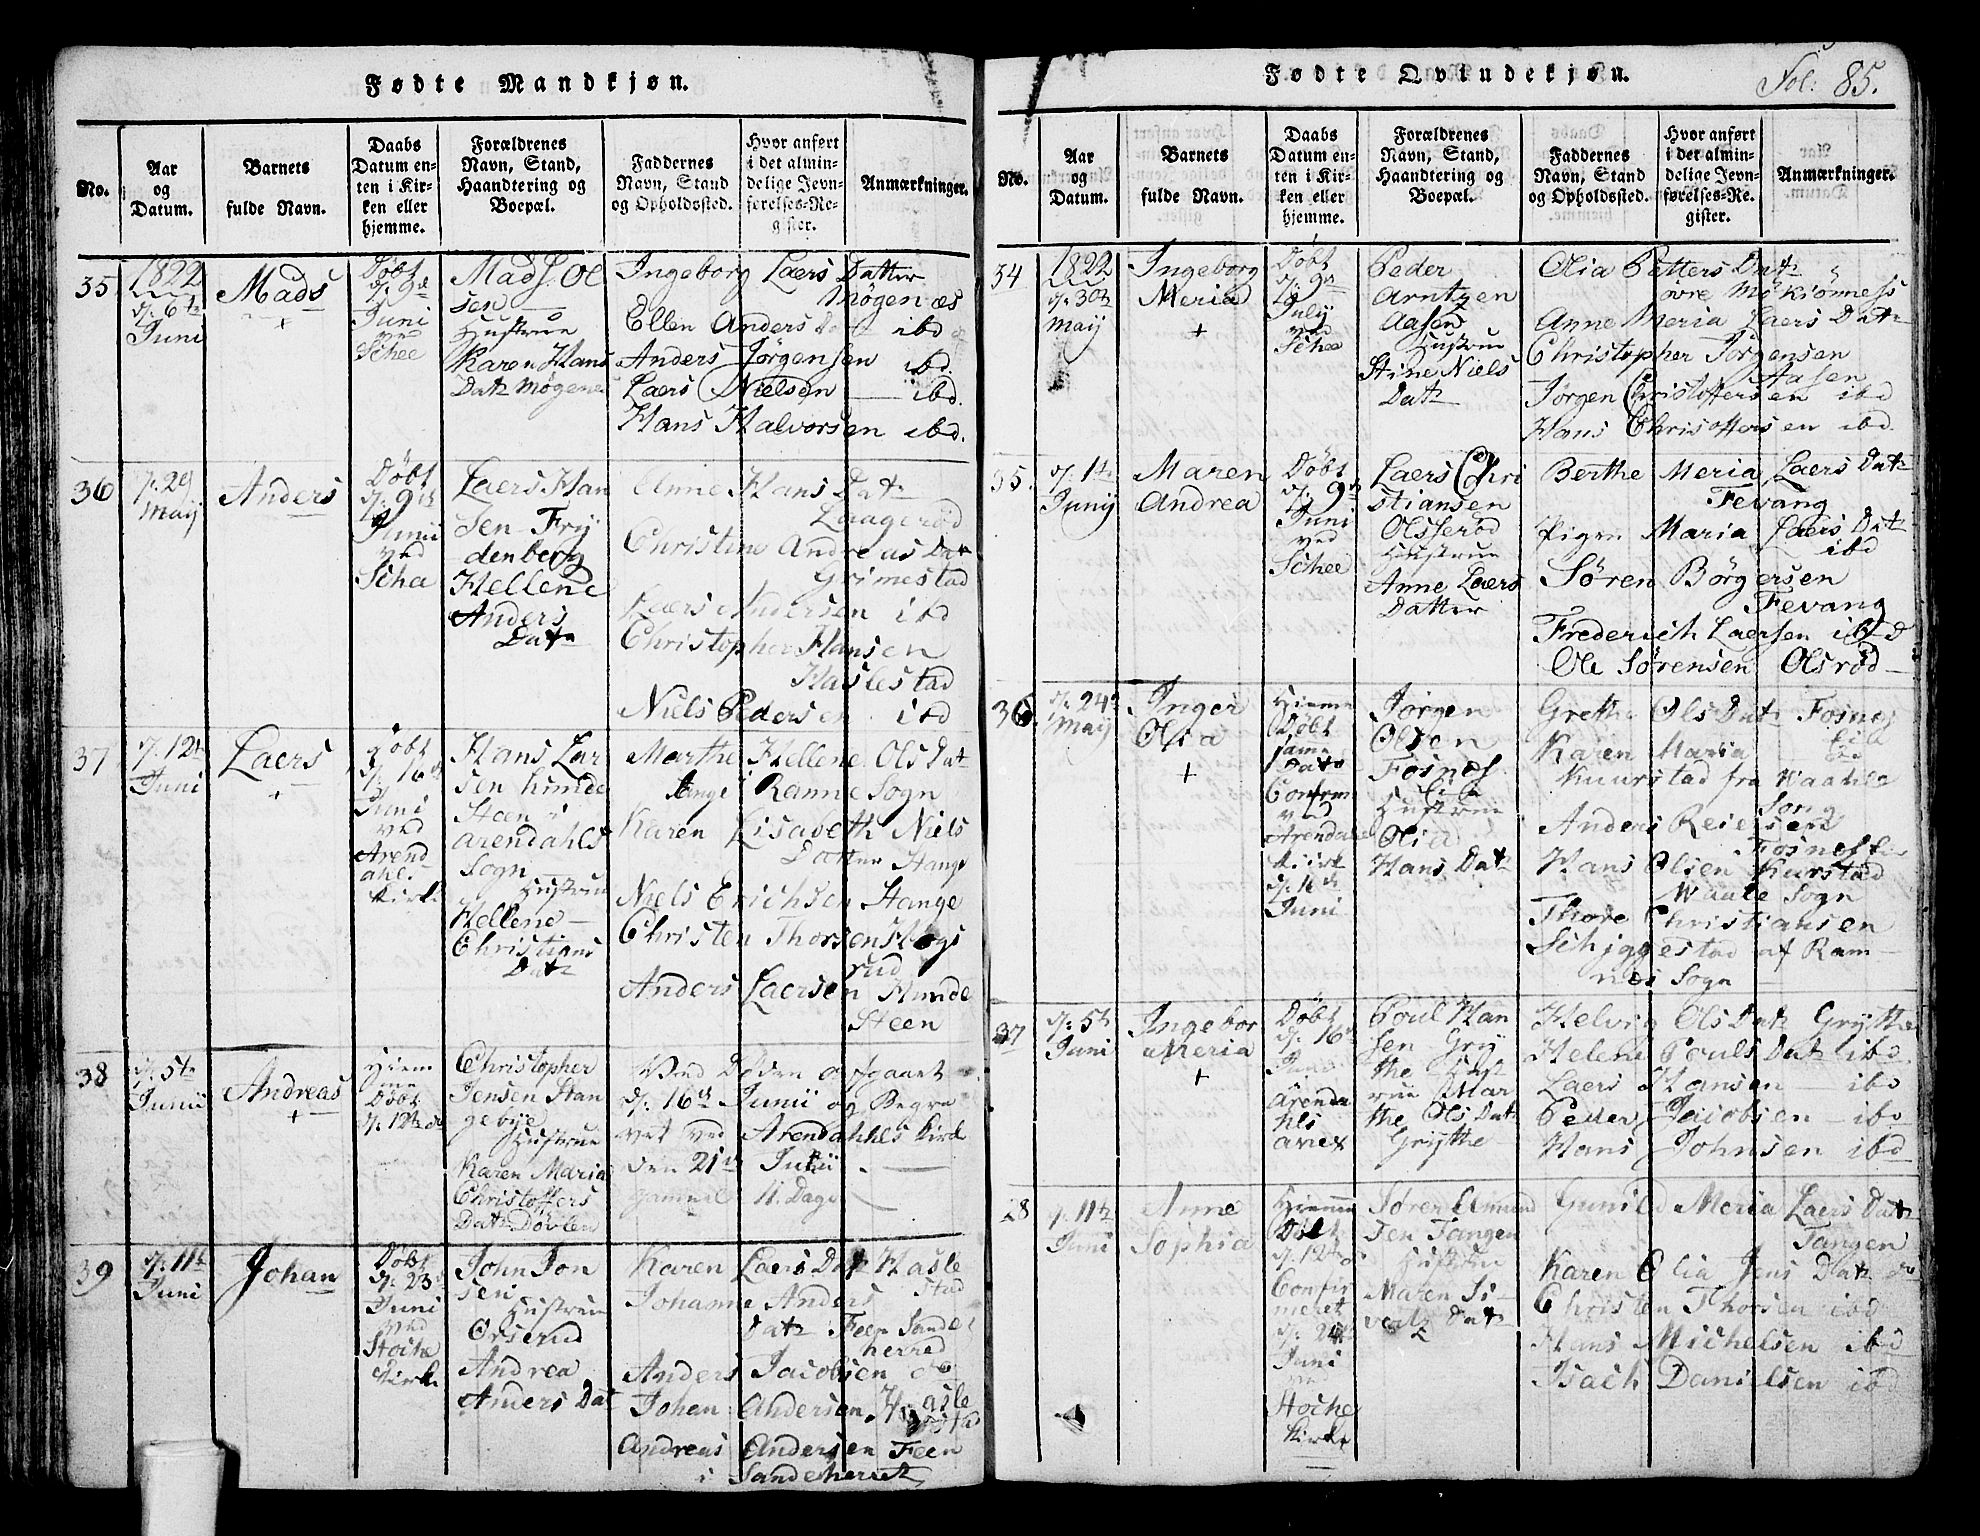 Fødte Mandkjøn.
No.
Aar og Datum.
Barnets fulde Navn.
Daabs Datum enten i Kirken eller hjemme.
Forældrenes Navn, Stand, Haandtering og Boepæl.
Faddernes Navn, Stand og Opholdssted.
Hvor anført i det almindelige Jevnførelses-Register.
Anmærkninger.
35
1822
d: 6te
Juni
Mads
+
Døbt
d: 9de
Juni
ved
Schee
Mads Ol
sen
Hustrue
Karen Hans
Datr Møgenes
Ingeborg Laers Datter
Møgen æs
Ellen Anders Dat ibd
Anders Jørgensen ibd.
Laers Nielsen ibd.
Hans Halvorsen ibd.
36
d: 29
Maij
Anders
Døbt
d: 9de
Junii
ved
Schee
Laers Han
sen Frÿ
denberg
Hellene
Anders
Datr
Anne Hans Datr
Laagerød
Christine Andreas Datr
Grimestad
Laers Andersen ibd
Christopher Hansen
Haslestad
Niels Pedersen ibd
37
d: 12te
Juni
Laers
+
Døbt
d: 16de
Juni
ved
Arend
ahls
Kirke
Hans Lar
sen Hunde
Steen i
Arendahls
Sogn
Hustrue
Hellene
Christians
Datr
Marthe Hellene Ols Datr
i Ramne Sogn
Karen Lisabeth Niels
Datter Hange
Niels Erichsen Hange
Christen Thorsen
rud
Anders Laersen Hunde
Steen
38
d: 5te
Junii
Andreas
+
Hiem
me
Døbt
d: 12te do
Christopher
Jensen Stan
gebÿe
Hustrue
Karen Maria
Christoffers
Datr Døvlen
Ved Døden afgaaet
d: 16de Junii og Begra
vet ved Arendahls Kirke
den 21de Junii
gammel 11. Dage
39
d: 11te
Juni
Johan
Døbt
d: 23de
Juni
ved
Stoche
Kirke
John Jon
sen
Hustrue
Orserud
Andrea
Anders Dat
Karen Laers Dat Hasle
stad
Johanne Anders
Datr Feen Sande
herred
Anders Jacobsen do
Johan Andersen Hasle
stad
Andreas Andersen Feen
i Sandeherret
Fødte Qvindekjøn.
Fol: 85.
No.
Aar og Datum.
Barnets fulde Navn.
Daabs Datum enten i Kirken eller hjemme.
Forældrenes Navn, Stand, Haandtering og Boepæl.
Faddernes Navn, Stand og Opholdssted.
Hvor anført i det almindelige Jevnførelses-Register.
Anmærkninger.
34
1822
d: 30te
Maij
Ingeborg
Meria
+
Døbt
d: 9de
July
ved
Schee
Peder
Arntzen
Aasen
Hustrue
Stine Niels
Datr
Olia Petters Datr
øvre Møkiønness
Anne Meria Laers Datr
Christopher Jørgensen
Aasen
Jørgen Christoffersen ibd
Hans Christoffersen ibd.
35.
d: 1te
Junij
Maren
Andrea
Døbt
d: 9de
Juni
ved
Schee
Laers Chri
stiansen
Olsserød
Hustrue
Anne Laers
Datter
Berthe Meria Laers Datr
Fevang
Pigen Maria Laers Datr
ibd
Søren Børgersen
Fevang
Frederich Laersen ibd
Ole Sørensen Olsrød
36
d: 24de
Maij
Inger
Olia
+
Hiemme
Døbt
same
Dato
Confirm
ved
Arendals
Kirke
d: 16de
Juni
Jørgen
Olsen
Fosnes
Eie
Hustrue
Olia
Hans Datr
Grethe Ols Datr Fosnes
Eie
Karen Maria
Kuurstad fra Waahle
Sogn
Anders Reiersen
Fosnes Eie
Hans Olsen Kurstad
Waale Sogn
Thore Christiansen
Schiggestad af Ram
nes Sogn
37
d: 5te
Juni
Ingebor
Meria
+
Døbt
d: 16de
Juni
Arenda
hls
anex
Poul Han
sen Grÿ
the Hust
rue Mar
the Ols Datr
Grÿthe
Helvig Ols Datr Grÿthe
Helene Pouls Datr ibd
Laers Hansen ibd
Peder Jacobsen ibd
Hans Johnsen ibd
28
d: 11te
Juni
Anne
Sophia
Hiemme
Døbt
d: 12te
Confir
meret
d: 24de
Juni
ved
Stoche
Kirke
Søren Amund
sen Tangen
Hustrue
Maren Si
verts Datr
Gunild Meria Laers Datr
Tangen
Karen Olia Jens Datr do
Christen Thorsen ibd
Hans Michelsen ibd
Isach Danielsen ibd